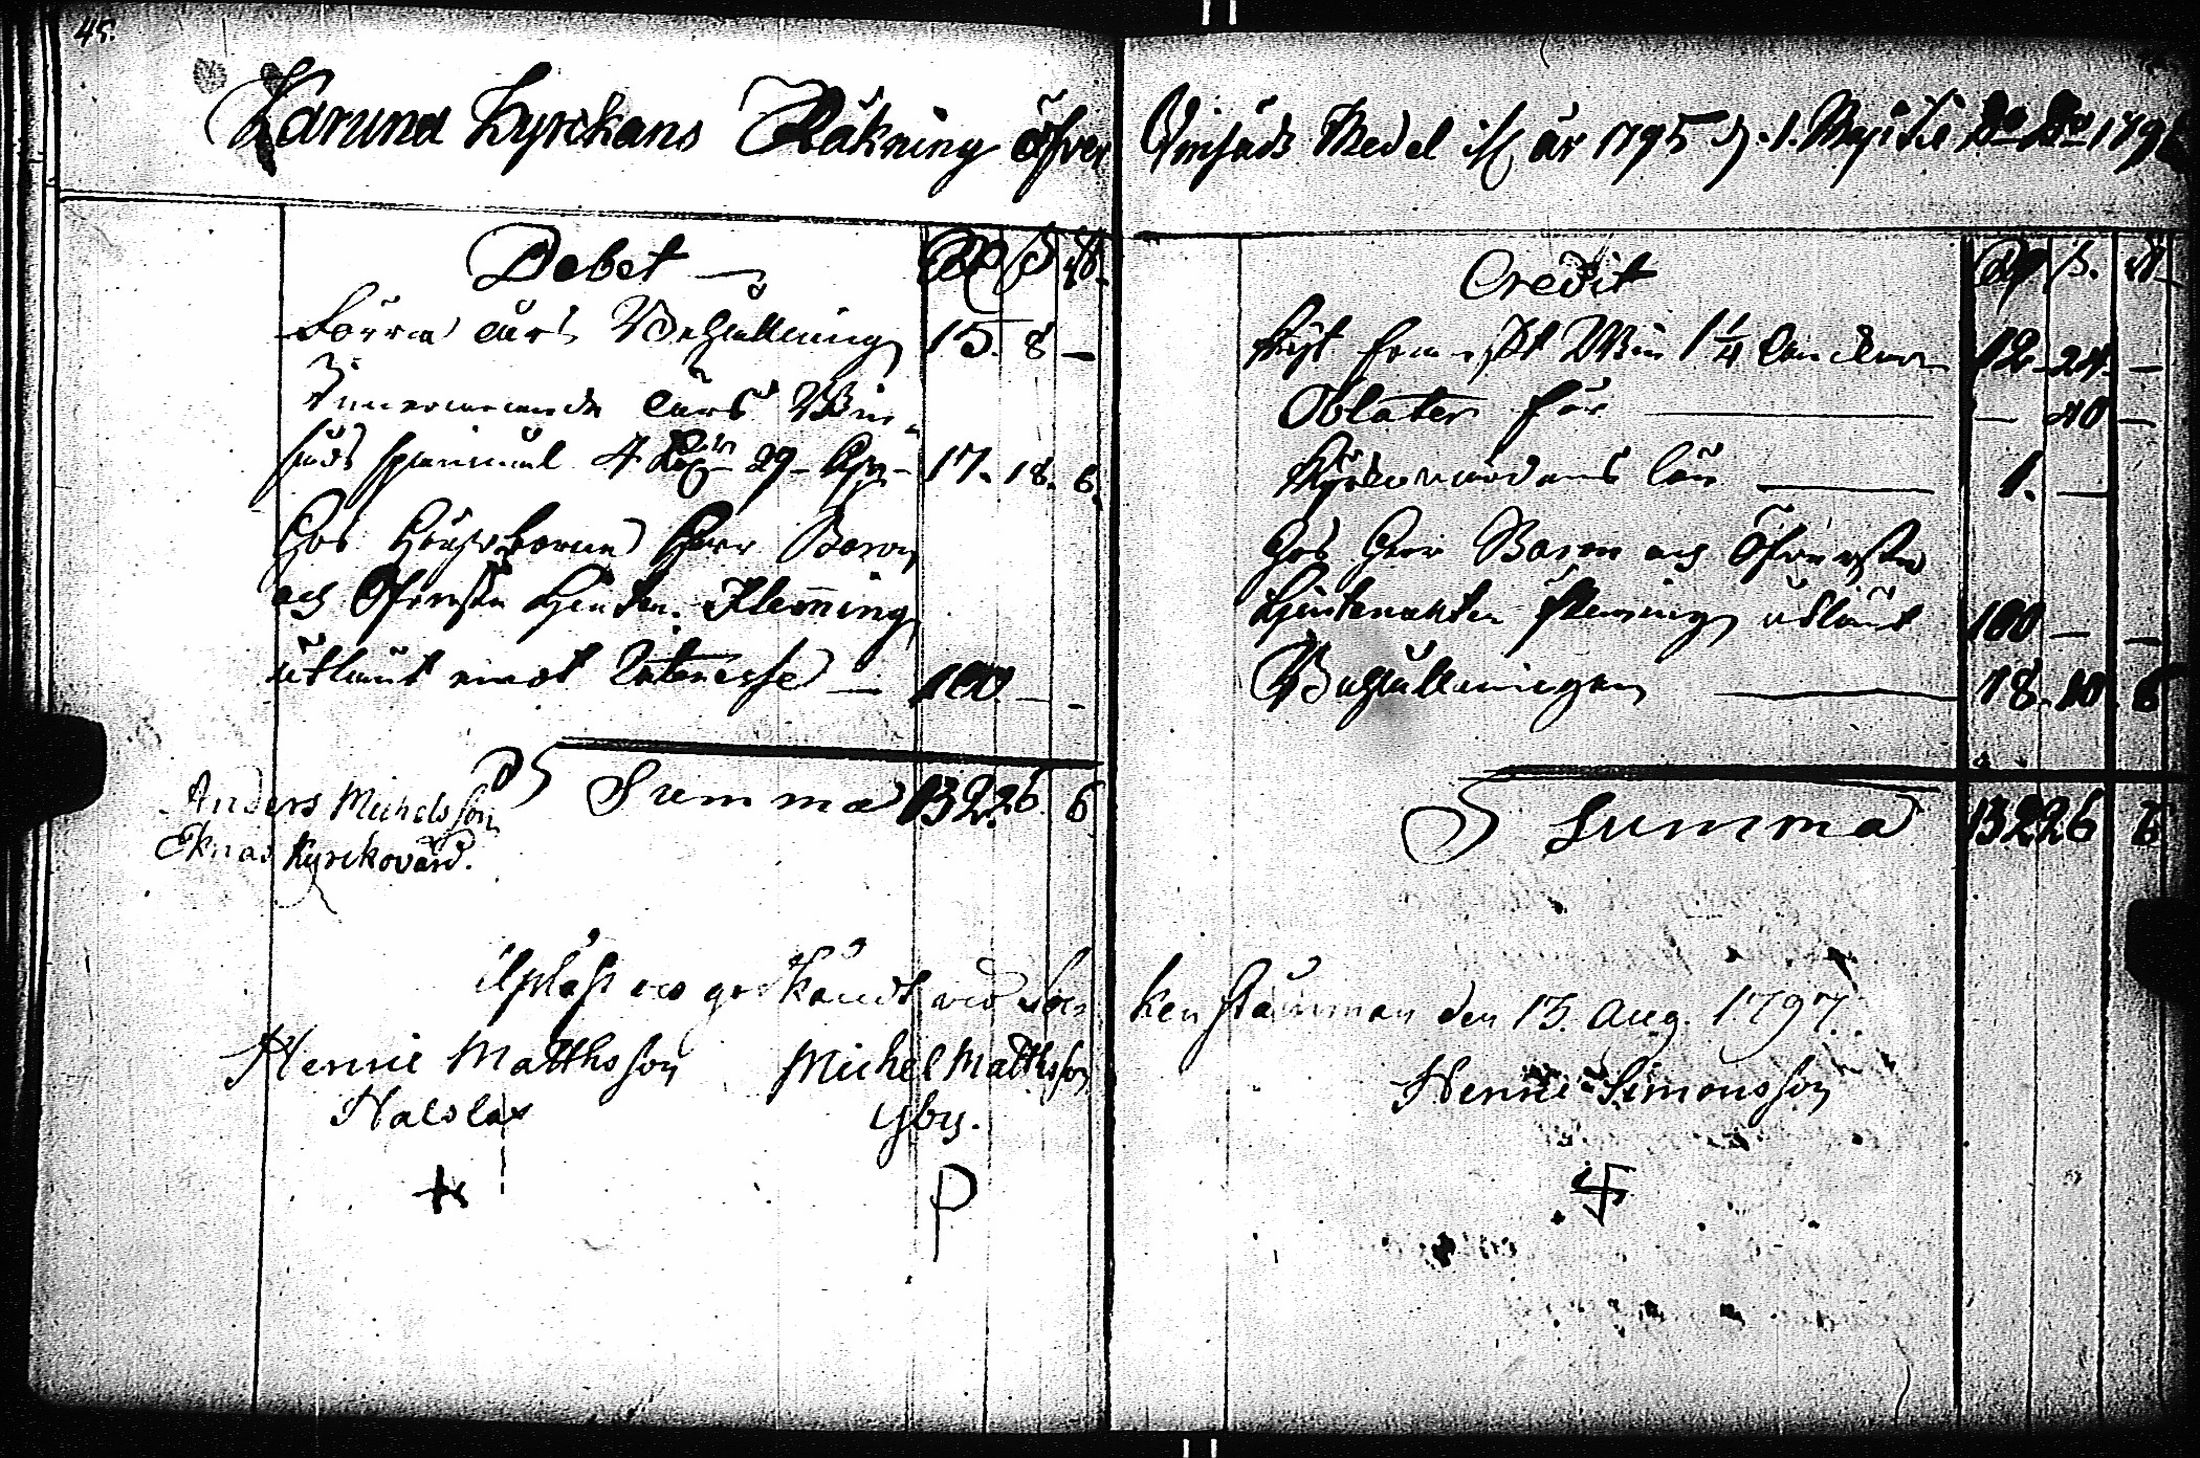 45.
Karuna Kyrckans Räkning öfver Winsäds Medel ifr. år 1795 d. 1. Maji til Do Do 179
Debet Rd ß rst.
Förra års Behållning 15. 8 —
Innevarande års Win-
säds spanmål 4 29 17. 18. 6.
Hos Högvälborne Herr Baron
och Öfverste Lieuten. Flemming
utlånt emot Interesse — 100. — -
Summa 132. 26. 6
Anders Michelsson
Eknäs Kyrckovärd.
Credit Rd ß. rst.
Köpt Win 1 1/4 12. 24. —
Oblater för — 40 —
Kyrkovärdens lön 1. —
Hos Herr Baron och Öfverste
Lieutenanten Flemming utlånt 100 — —
Behållningen 18. 10. 6
Summa 132 26 6
Upläst och godkändt wid Soc-
ken stämman den 13. Aug. 1797.
Henric Matthsson Michel Matthsson Henric Simonsson
Halslax Yby.
P